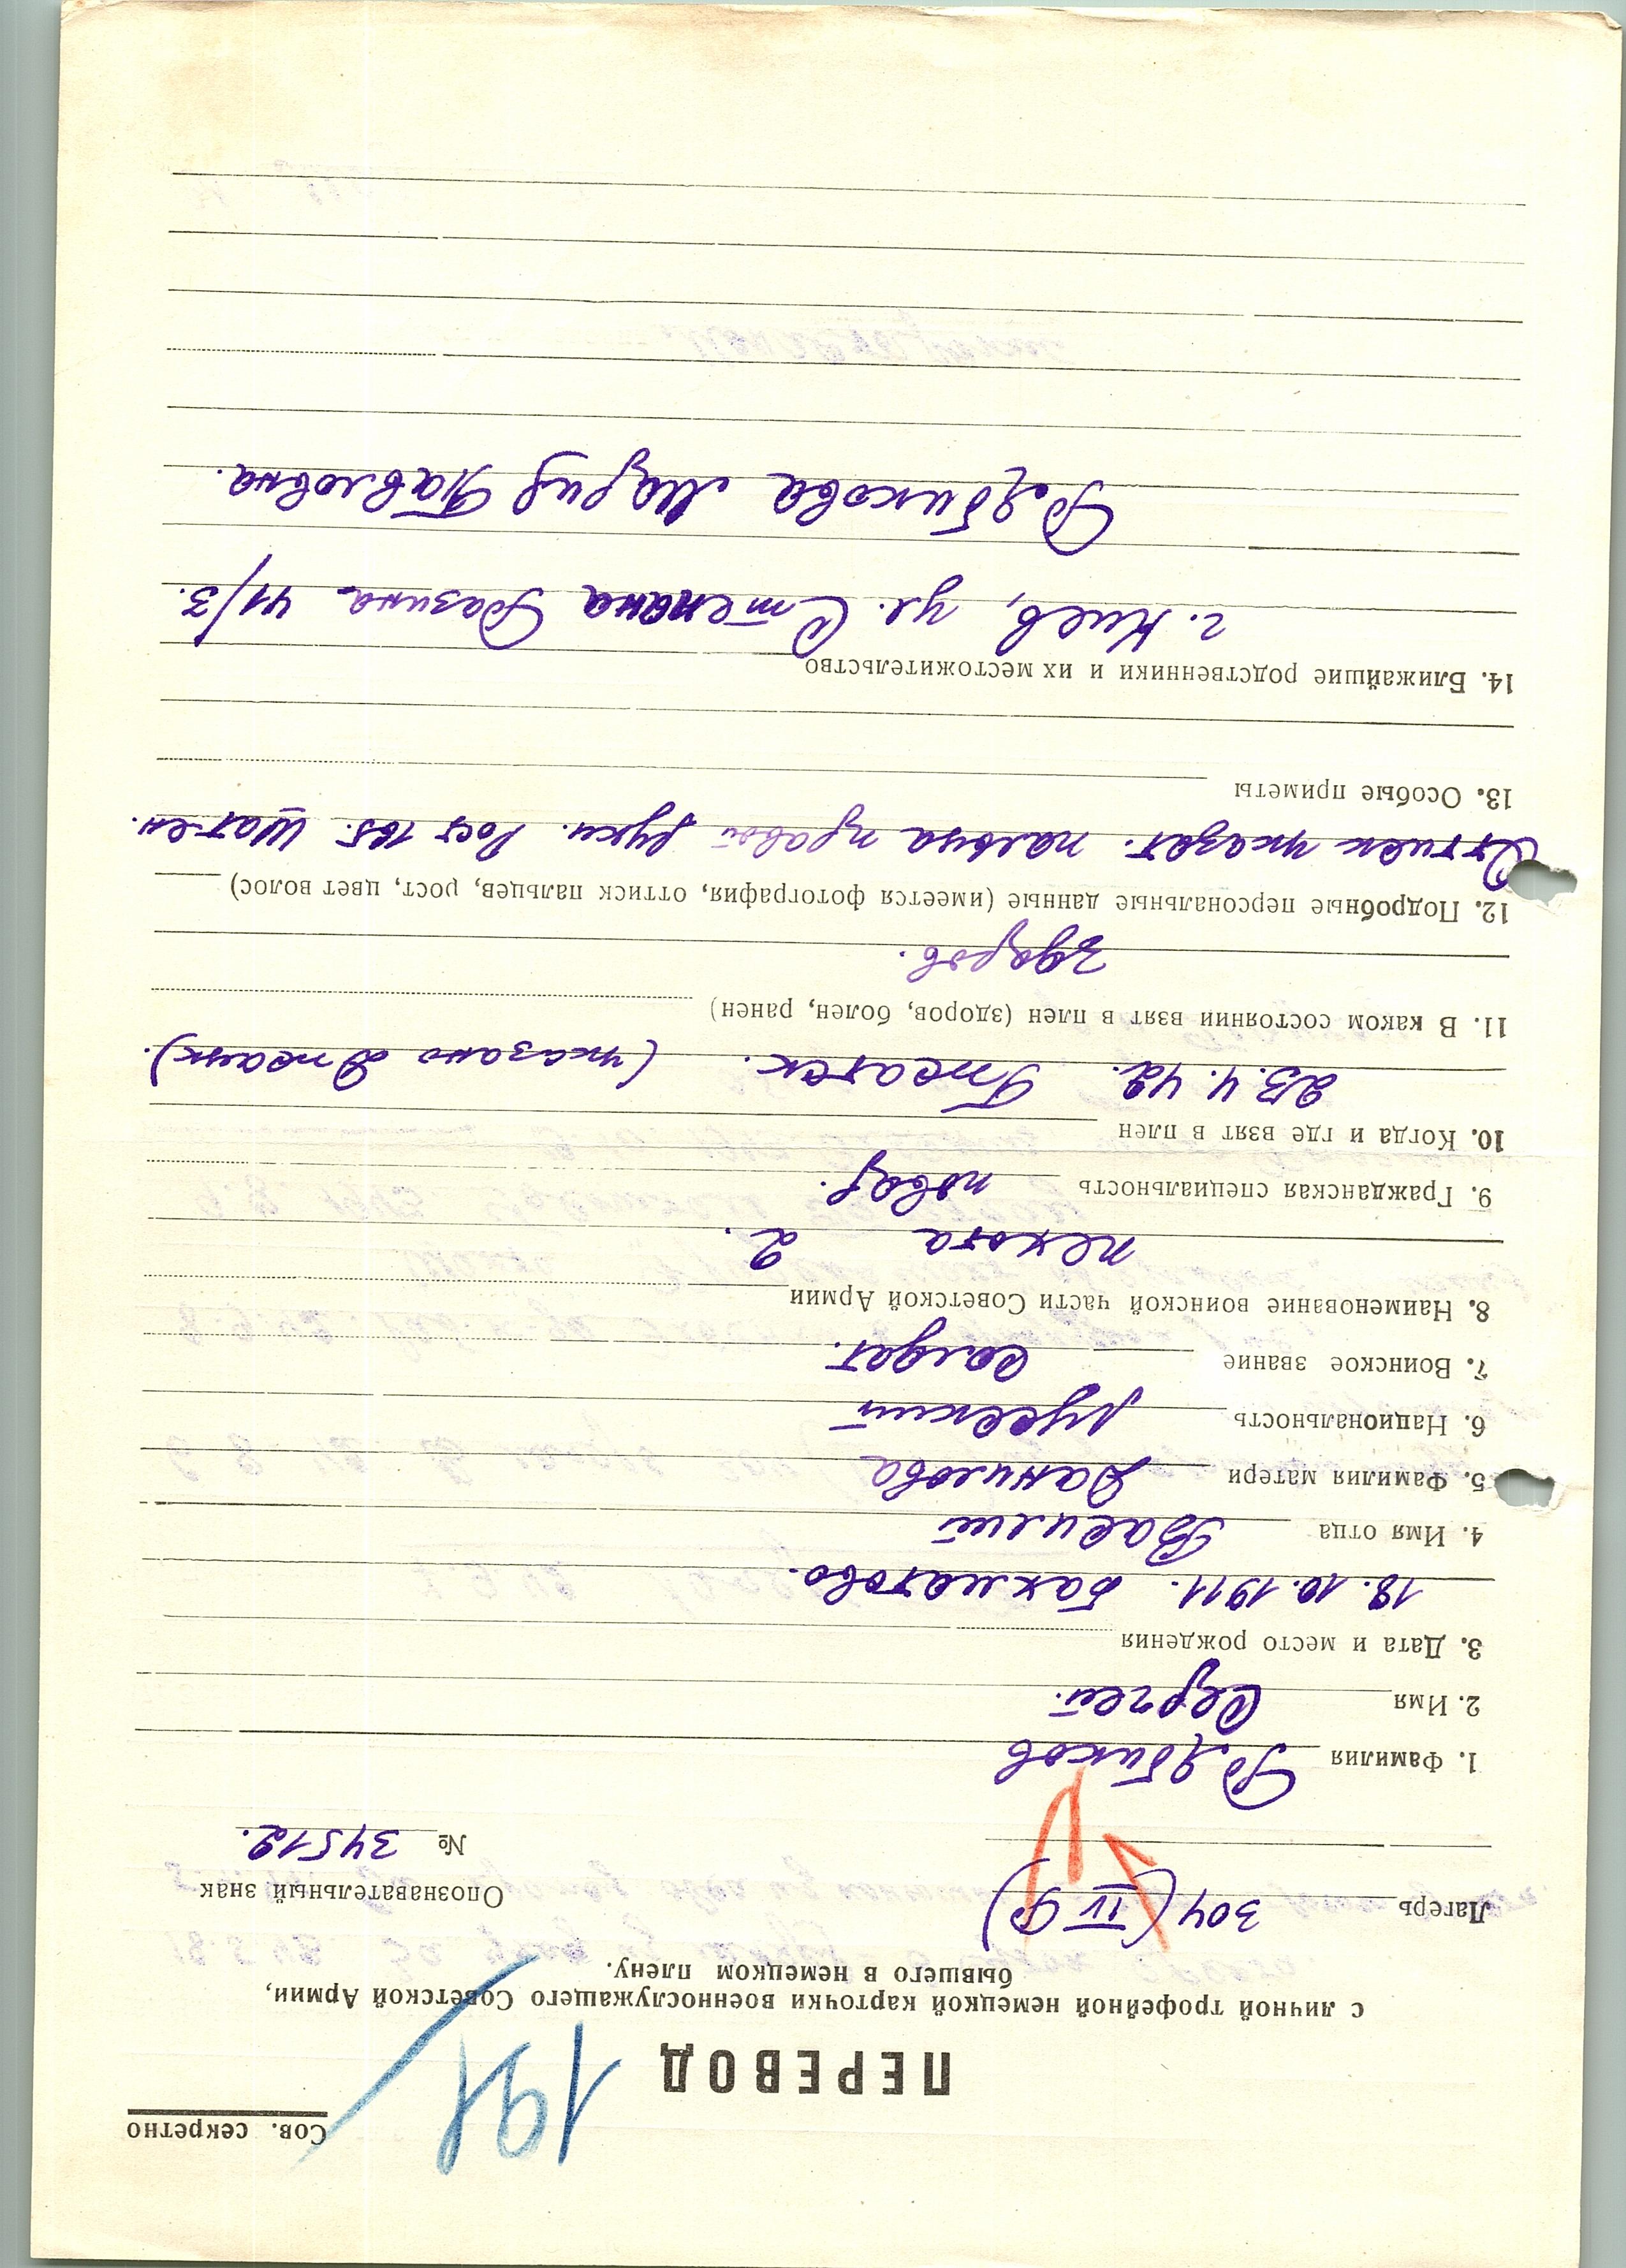 Сов. секретно
191
ПЕРЕВОД
с личной трофейной немецкой карточки военнослужащего Советской Армии,
бывшего в немецком плену.
Лагерь 304 (IV Ф) Опознавательный знак
№ 34512.
1. Фамилия Рябиков
2. Имя Сергей.
3. Дата и место рождения
18.10.1911. Бахматово.
4. Имя отца Василий
5. Фамилия матери Данилова
6. Национальность русский
7. Воинское звание Солдат.
8. Наименование воинской части Советской Армии
пехота 2.
9. Гражданская специальность повар.
10. Когда и где взят в плен
23.4.42. Гжатск. (указано Джатск).
11. В каком состоянии взят в плен (здоров, болен, ранен)
здоров.
12. Подробные персональные данные (имеется фотография, оттиск пальцев, рост, цвет волос)
Оттиск указат. пальца правой руки. Рост 165. Шатен.
13. Особые приметы
14. Ближайшие родственники и их местожительство
г. Киев, ул. Степана Разина 41/3.
Рябикова Мария Павловна.